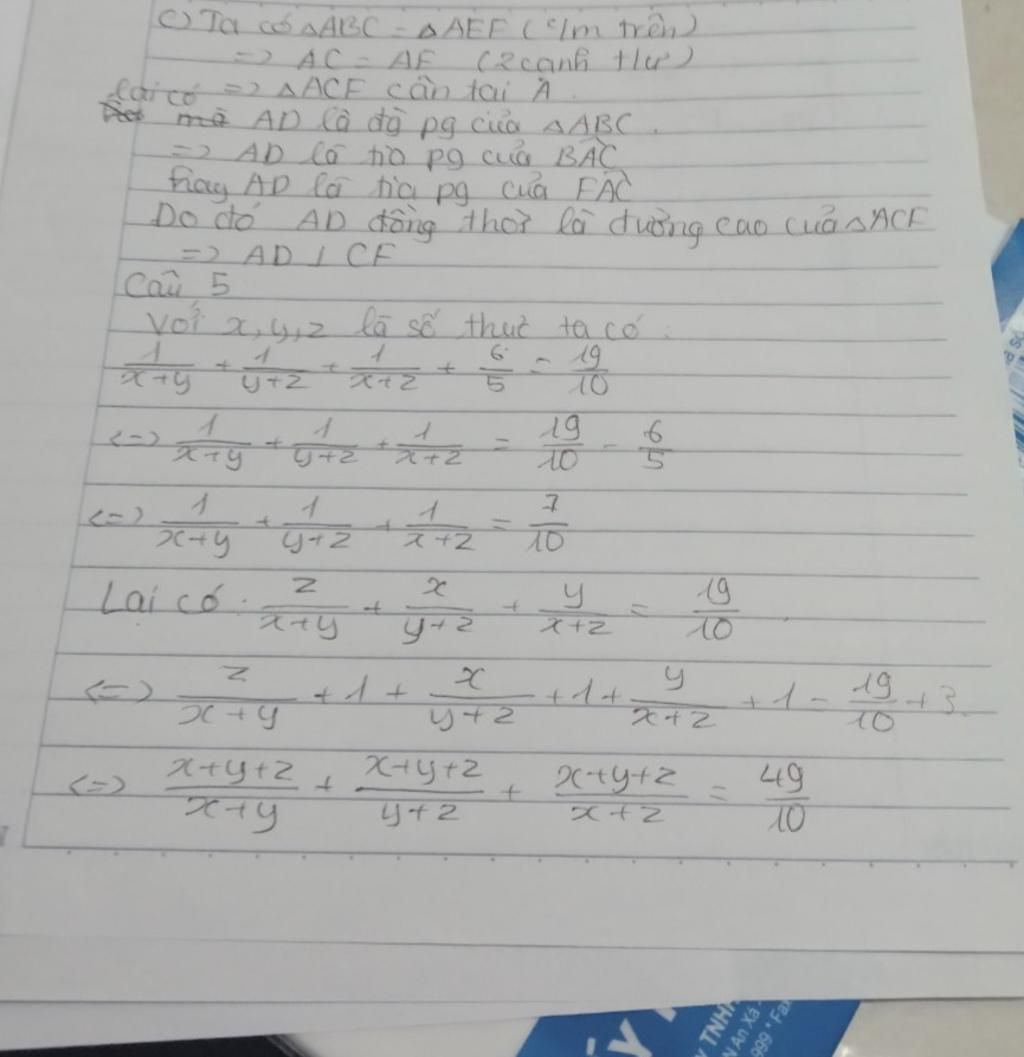 c) Ta có △ABC = △AEF (c/m trên)
=> AC = AF (2 cạnh t/ư)
lại có => △ACF cân tại A
mà AD là đg pg của △ABC.
=> AD là tia pg của BAC
hay AD là tia pg của FAC
Do đó AD đồng thời là đường cao của △ACF
=> AD ⊥ CF
Câu 5
Với x, y, z là số thực ta có:
1/(x+y) + 1/(y+z) + 1/(x+z) + 6/5 = 19/10
<=> 1/(x+y) + 1/(y+z) + 1/(x+z) = 19/10 - 6/5
<=> 1/(x+y) + 1/(y+z) + 1/(x+z) = 7/10
Lại có: z/(x+y) + x/(y+z) + y/(x+z) = 19/10
<=> z/(x+y) + 1 + x/(y+z) + 1 + y/(x+z) + 1 = 19/10 + 3
<=> (x+y+z)/(x+y) + (x+y+z)/(y+z) + (x+y+z)/(x+z) = 49/10
TNHH
N An Xá
999 * Fax